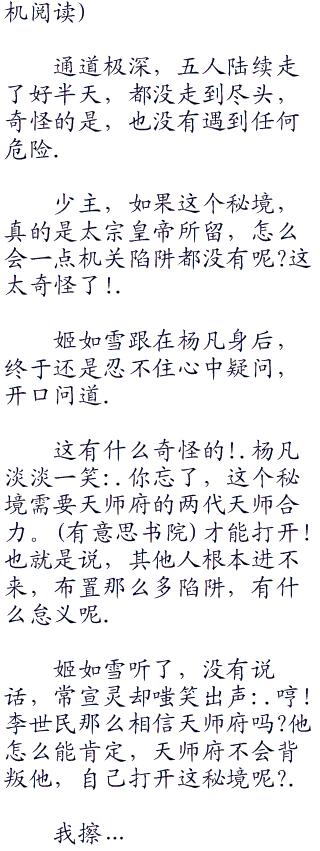 机阅读)
通道极深，五人陆续走
了好半天，都没走到尽头，
奇怪的是，也没有遇到任何
危险.
少主，如果这个秘境，
真的是太宗皇帝所留，怎么
会一点机关陷阱都没有呢?这
太奇怪了!.
姬如雪跟在杨凡身后，
终于还是忍不住心中疑问，
开口问道.
这有什么奇怪的!.杨凡
淡淡一笑:.你忘了，这个秘
境需要天师府的两代天师合
力。(有意思书院)才能打开!
也就是说，其他人根本进不
来，布置那么多陷阱，有什
么怠义呢.
姬如雪听了，没有说
话，常宣灵却嗤笑出声:.哼!
李世民那么相信天师府吗?他
怎么能肯定，天师府不会背
叛他，自己打开这秘境呢?.
我擦...